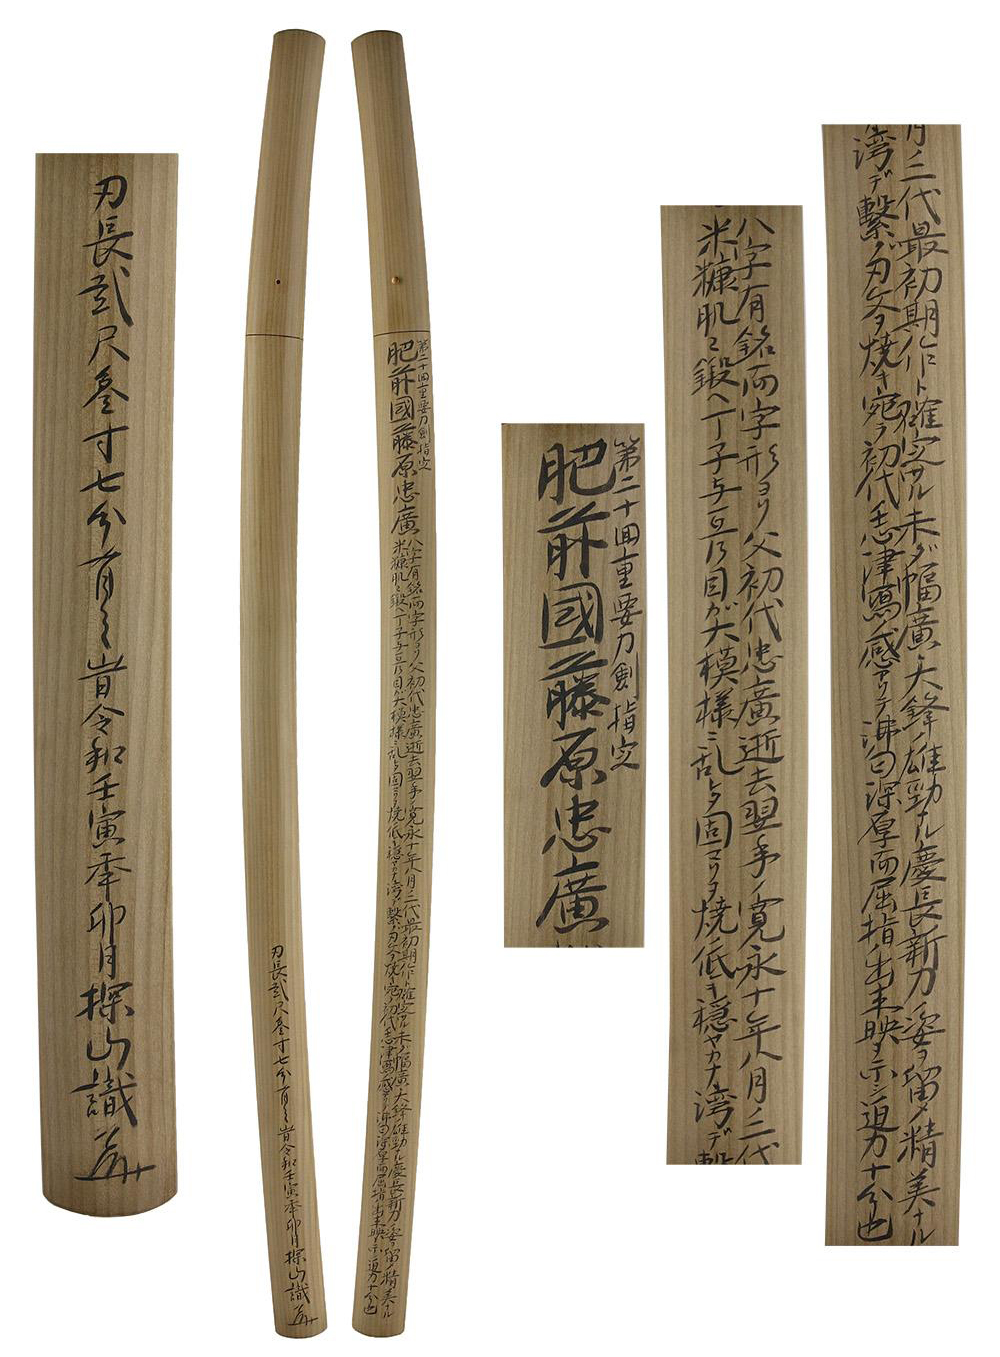 刃長貳尺叁寸七分有之旹令和壬寅年卯月探山識
刃長貳尺叁寸七分有之旹令和壬寅年卯月探山識
第二十回重要刀剣指定
肥前國藤原忠廣
八字有銘而字形ヨリ父初代忠廣逝去翌年ノ寛永十年八月ノ二代最初期作ト確定サル未ダ幅廣大鋒ノ雄勁ナル慶長新刀ノ姿ヲ留メ精美ナル
米糠肌ニ鍛ヘ丁子与互乃目ガ大模様ニ乱レタ固マリヲ焼低キ穏ヤカナ湾デ繋グ刃文ヲ焼キ宛ラ初代志津寫ノ感アリテ沸匂深厚而屈指出来映ヲ示シ迫力十分也
第二十回重要刀剣指定
肥前國藤原忠廣
八字有銘而字形ヨリ父初代忠廣逝去翌年ノ寛永十年八月ノ二代
米糠肌ニ鍛ヘ丁子与互乃目ガ大模様ニ乱レタ固マリヲ焼低キ穏ヤカナ湾デ繋
月ノ二代最初期作ト確定サル未ダ幅廣大鋒ノ雄勁ナル慶長新刀ノ姿ヲ留メ精美ナル
湾デ繋グ刃文ヲ焼キ宛ラ初代志津寫ノ感アリテ沸匂深厚而屈指出来映ヲ示シ迫力十分也